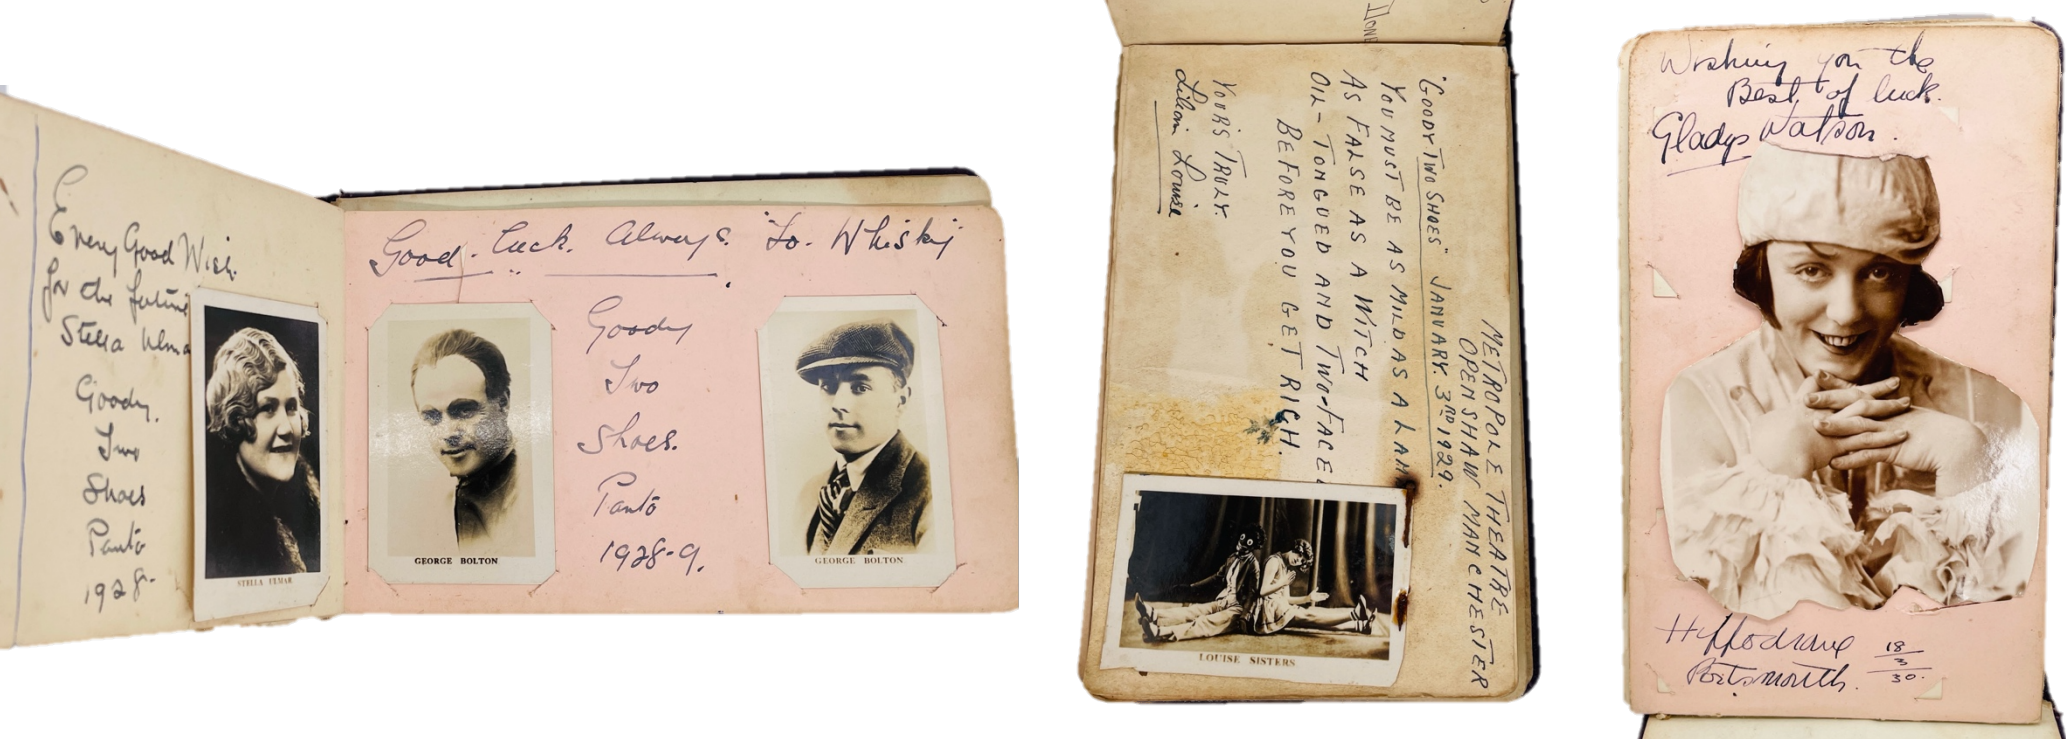 Every Good Wish
for the future
Stella Ulma
Goody.
Two
Shoes
Panto
1928-
STELLA ULMAR
Good luck. Always. To. Whisky
Goody
Two
Shoes.
Panto
1928-9.
GEORGE BOLTON
GEORGE BOLTON
METROPOLE THEATRE
OPENSHAW MANCHESTER
"GOODY TWO SHOES" JANUARY. 3RD 1929.
YOU MUST BE AS MILD AS A LAM
AS FALSE AS A WITCH
OIL-TONGUED AND TWO-FACE
BEFORE YOU GET RICH.
YOURS TRULY.
Lilian Louise
LOUISE SISTERS
Wishing you the
Best of luck.
Gladys Watson.
Hippodrome
Portsmouth.
18/3/30.